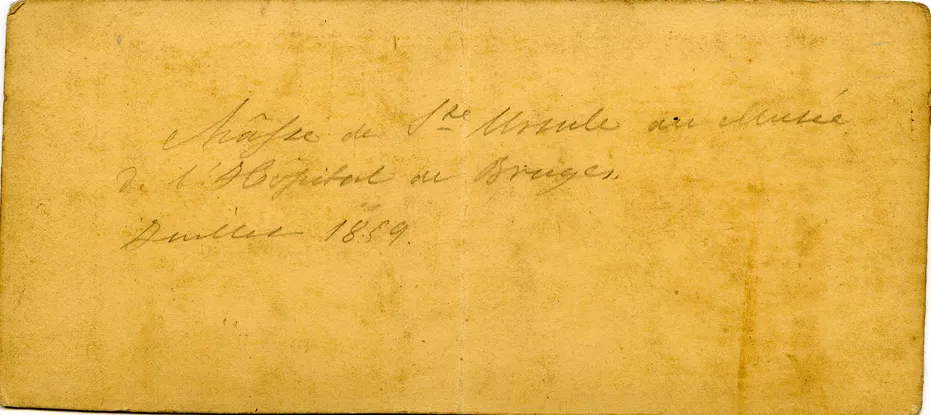 Châsse de Ste Ursule au Musée
de l'Hôpital de Bruges.
Juillet 1859.